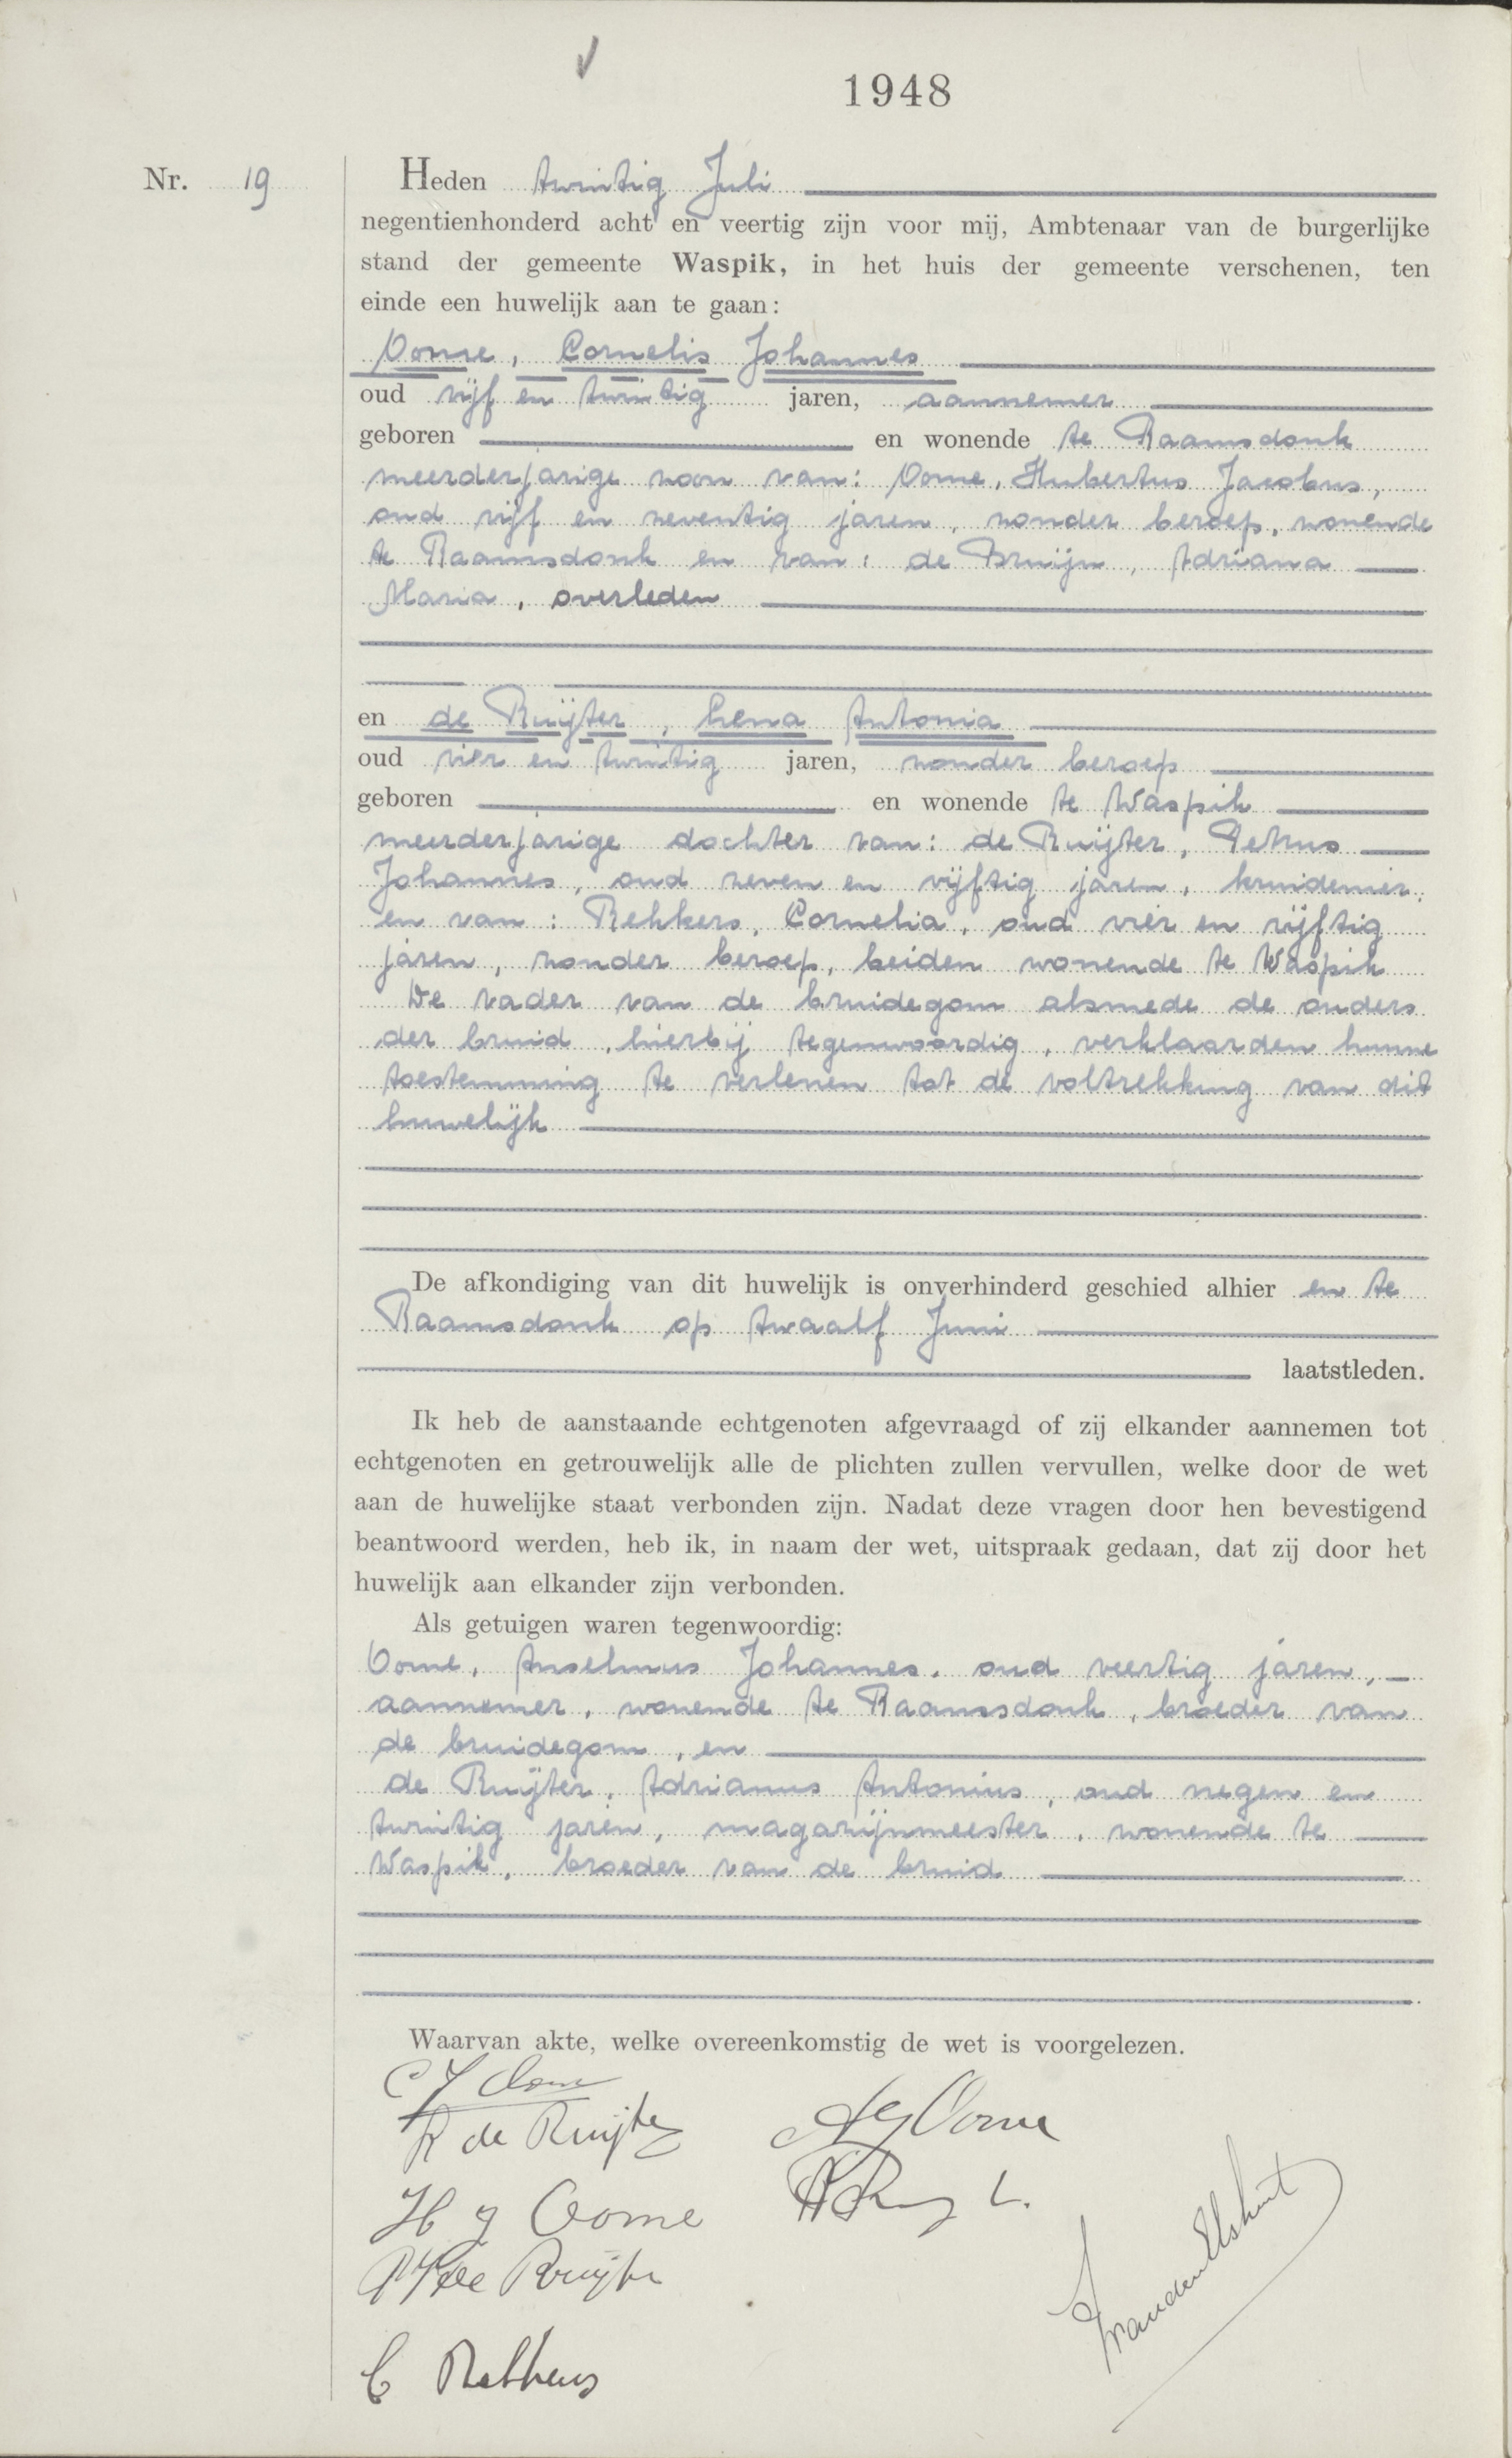 1948
Nr. 19
Heden twintig Juli
negentienhonderd acht en veertig zijn voor mij, Ambtenaar van de burgerlijke
stand der gemeente Waspik, in het huis der gemeente verschenen, ten
einde een huwelijk aan te gaan:
Oome, Cornelis Johannes
oud vijf en twintig jaren, aannemer
geboren en wonende te Raamsdonk
meerderjarige zoon van: Oome, Hubertus Jacobus,
oud vijf en zeventig jaren, zonder beroep, wonende
te Raamsdonk en van: de Bruijn, Adriana
Maria, overleden
en de Ruijter, Lena Antonia
oud vier en twintig jaren, zonder beroep
geboren en wonende te Waspik
meerderjarige dochter van: de Ruijter, Petrus
Johannes, oud zeven en vijftig jaren, kruidenier,
en van: Rekkers, Cornelia, oud vier en vijftig
jaren, zonder beroep, beiden wonende te Waspik
De vader van de bruidegom alsmede de ouders
der bruid, hierbij tegenwoordig, verklaarden hunne
toestemming te verlenen tot de voltrekking van dit
huwelijk
De afkondiging van dit huwelijk is onverhinderd geschied alhier en te
Raamsdonk op twaalf Juni
laatstleden.
Ik heb de aanstaande echtgenoten afgevraagd of zij elkander aannemen tot
echtgenoten en getrouwelijk alle de plichten zullen vervullen, welke door de wet
aan de huwelijke staat verbonden zijn. Nadat deze vragen door hen bevestigend
beantwoord werden, heb ik, in naam der wet, uitspraak gedaan, dat zij door het
huwelijk aan elkander zijn verbonden.
Als getuigen waren tegenwoordig:
Oome, Anselmus Johannes, oud veertig jaren,
aannemer, wonende te Raamsdonk, broeder van
de bruidegom, en
de Ruijter, Adrianus Antonius, oud negen en
twintig jaren, magazijnmeester, wonende te
Waspik, broeder van de bruid
Waarvan akte, welke overeenkomstig de wet is voorgelezen.
C J Oome
de Ruijter
AJ Oome
H J Oome
PJ de Ruijter
C Rekkers